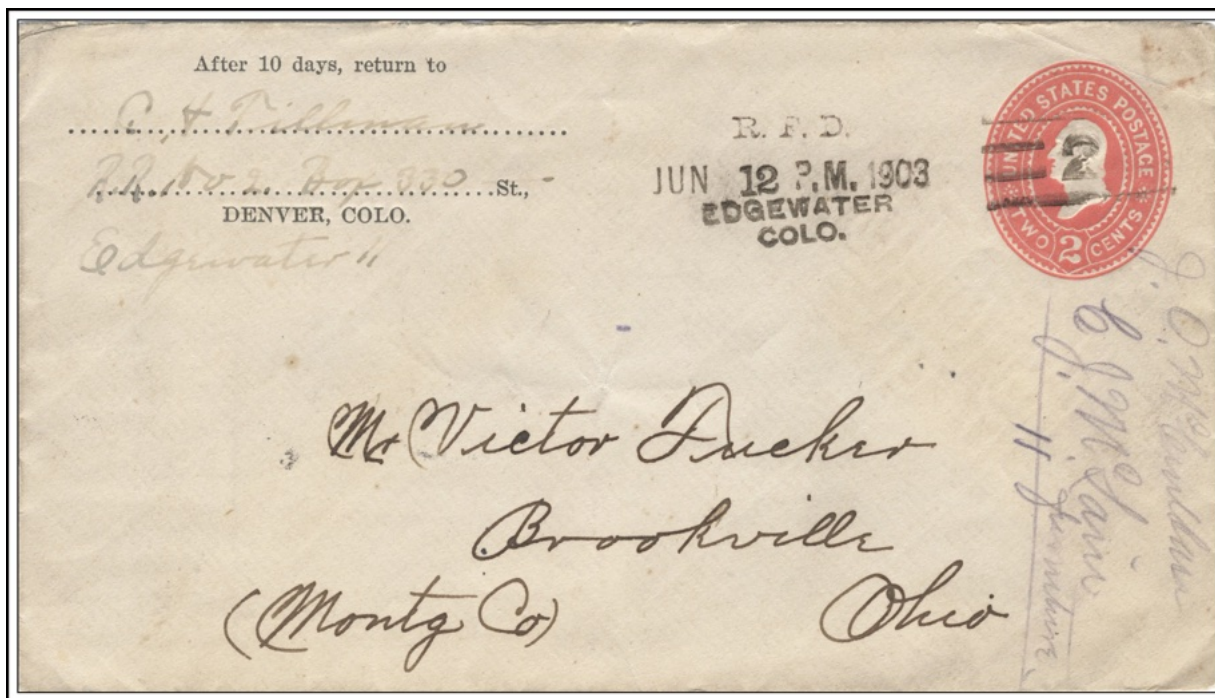 After 10 days, return to
C. H Tillman
R.R. No 2. Box 330 St.,
DENVER, COLO.
Edgewater "
R. F. D.
JUN 12 P.M. 1903
EDGEWATER
COLO.
2
UNITED STATES POSTAGE
TWO 2 CENTS
Mr Victor Tucker
Brookville
(Montg Co)
Ohio